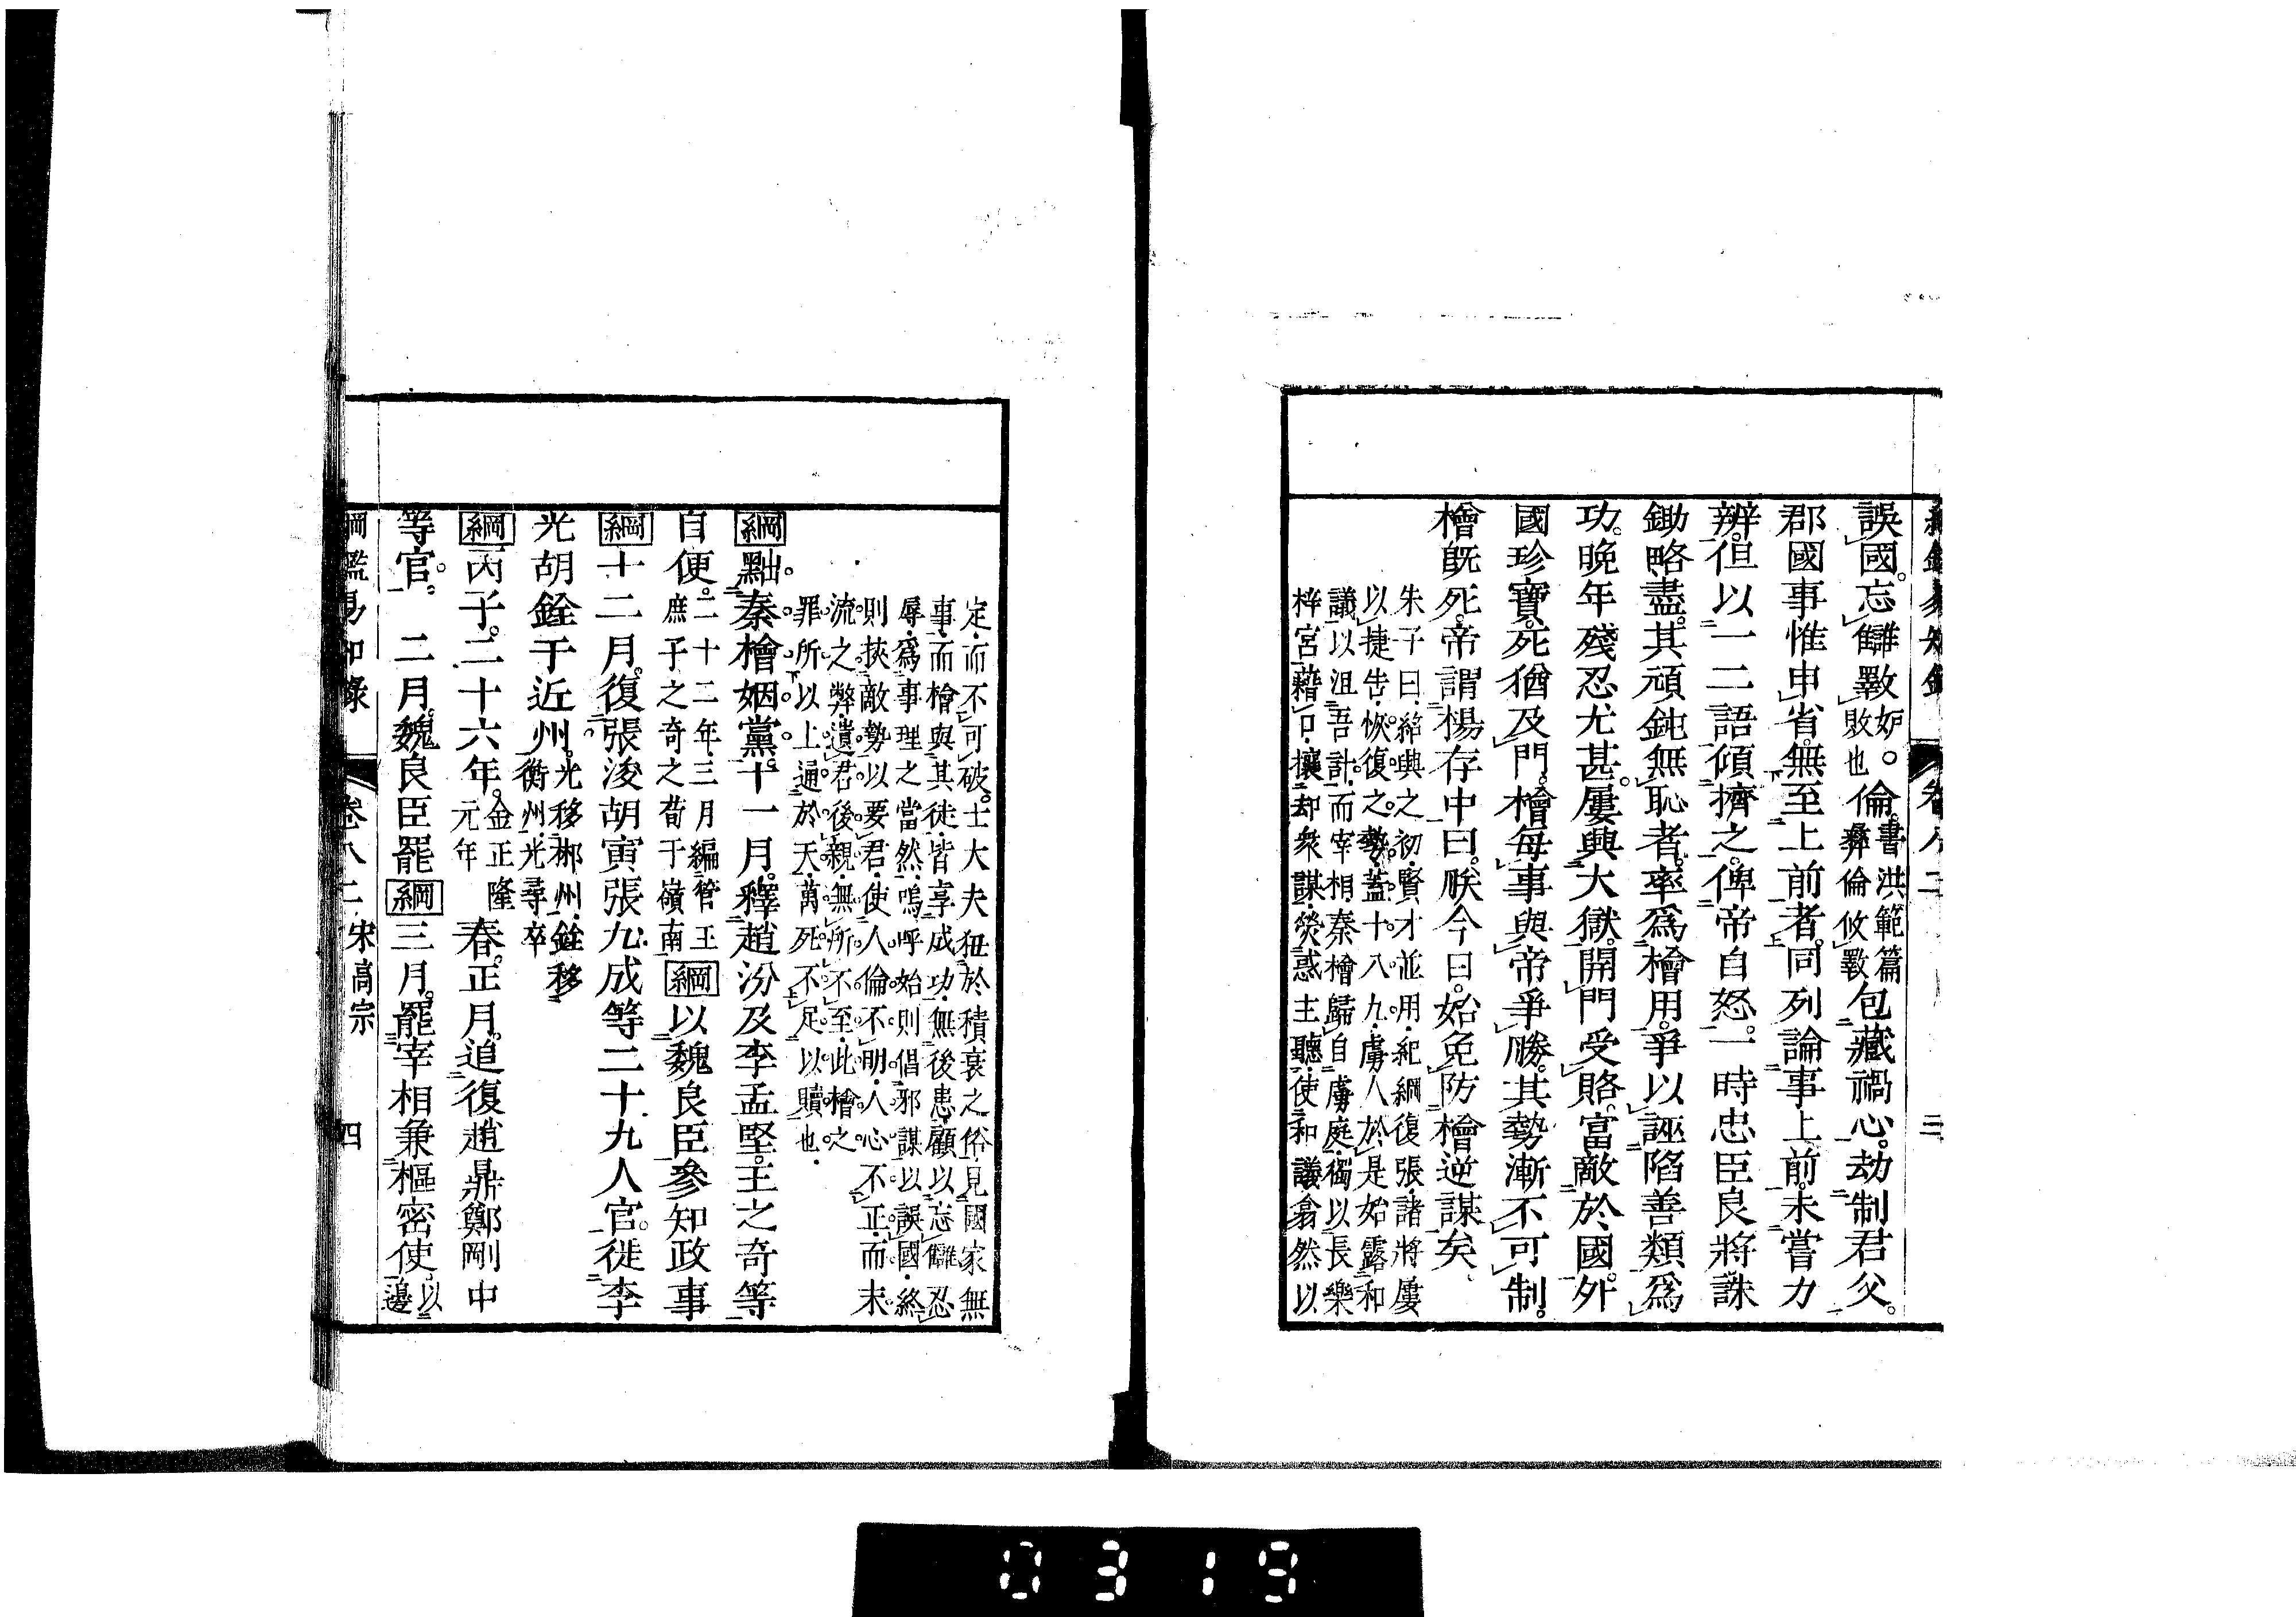 綱鑑易知錄 卷八二 三
誤國。忘讎斁妒。敗也倫。書洪範篇彝倫攸斁包藏禍心。劫制君父。
郡國事惟申省。無至上前者。同列論事上前。未嘗力
辨。但以一二語傾擠之。俾帝自怒。一時忠臣良將。誅
鋤略盡。其頑鈍無恥者。率爲檜用。爭以誣陷善類爲
功。晚年殘忍尤甚。屢興大獄。開門受賂。富敵於國。外
國珍寶。死猶及門。檜每事與帝爭勝。其勢漸不可制。
檜旣死。帝謂楊存中曰。朕今日。始免防檜逆謀矣、
朱子曰、紹興之初、賢才並用、紀綱復張、諸將屢
以捷告、恢復之勢、蓋十八九、虜人於是始露和
議、以沮吾計、而宰相秦檜歸自虜庭、獨以長樂
梓宮藉口、攘却衆謀、熒惑主聽、使和議翕然以
定、而不可破、士大夫狃於積衰之俗、見國家無
事、而檜與其徒、皆享成功、無後患、顧以忘讎忍
辱、爲事理之當然、嗚呼、始則倡邪謀以誤國、終
則挾敵勢以要君、使人倫不明、人心不正、而末
流之弊、遺君後親、無所不至、此檜之
罪所以上通於天、萬死不足以贖也、
綱黜秦檜姻黨。十一月。釋趙汾及李孟堅。王之奇等
自便。二十二年、三月編管王庶子之奇之荀于嶺南綱以魏良臣參知政事
綱十二月。復張浚胡寅張九成等二十九人官。徙李
光胡銓于近州。光移郴州、銓移衡州、光尋卒
綱丙子。二十六年。金正隆元年春。正月。追復趙鼎鄭剛中
等官。 二月。魏良臣罷綱三月。罷宰相兼樞密使、以邊
綱鑑易知錄 卷八二 宋高宗 四
0319